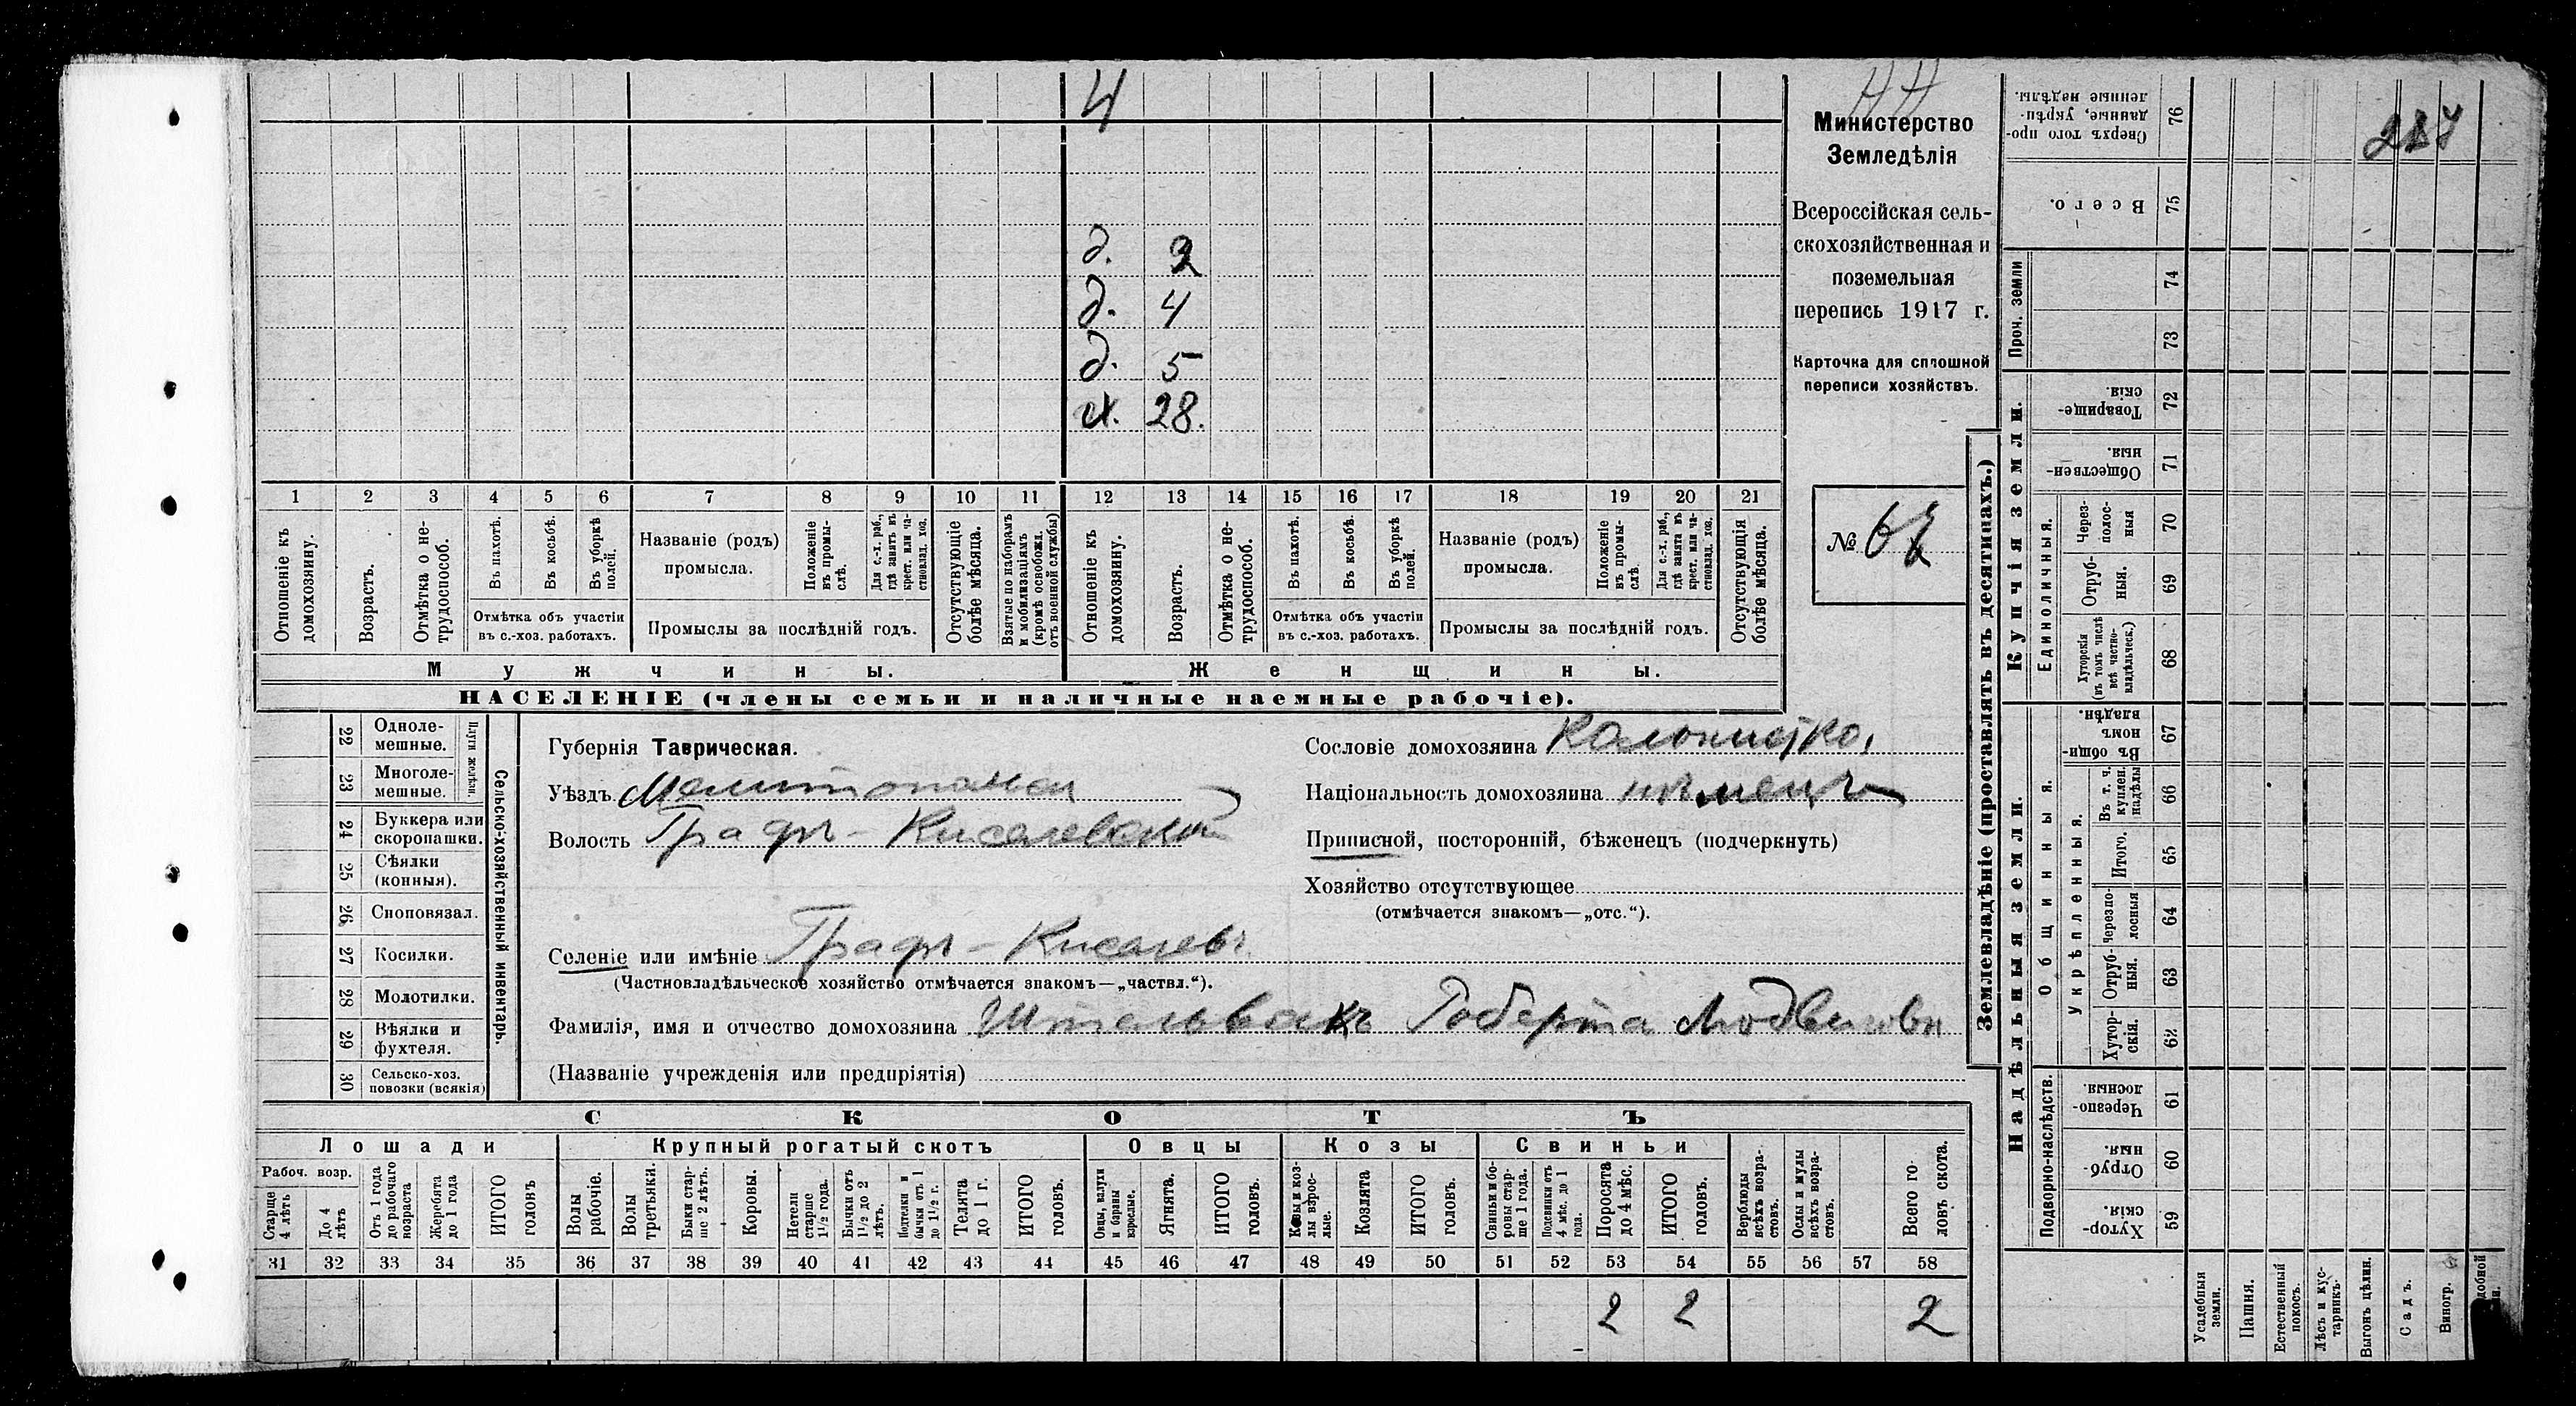 4
Министерство
Земледѣлія
Всероссійская сель-
скохозяйственная и
поземельная
перепись 1917 г.
Карточка для сплошной
переписи хозяйствъ.
№
д. 2
д. 4
д. 5
28.
1 2 3 4 5 6 7 8 9 10 11 12 13 14 15 16 17 18 19 20 21
Отношеніе къ домохозяину.
Возрастъ.
Отмѣтка о не-трудоспособ.
Въ пахотѣ.
Въ косьбѣ.
Въ уборкѣ полей.
Названіе (родъ) промысла.
Положеніе въ промы-слѣ.
Для с.-х. раб., гдѣ занятъ въ крест. или ча-стновлад. хоз.
Отсутствующіе болѣе мѣсяца.
Взятые по наборамъ и мобилизаціямъ (кромѣ освобожд. отъ военной службы)
Отношеніе къ домохозяину.
Возрастъ.
Отмѣтка о не-трудоспособ.
Въ пахотѣ.
Въ косьбѣ.
Въ уборкѣ полей.
Названіе (родъ) промысла.
Положеніе въ промы-слѣ.
Для с.-х. раб., гдѣ занята въ крест. или ча-стновлад. хоз.
Отсутствующія болѣе мѣсяца.
Отмѣтка объ участіи въ с.-хоз. работахъ.
Промыслы за послѣдній годъ.
Отмѣтка объ участіи въ с.-хоз. работахъ.
Промыслы за послѣдній годъ.
Мужчины.
Женщины.
НАСЕЛЕНІЕ (члены семьи и наличные наемные рабочіе).
22 Одноле-мешные.
23 Многоле-мешные.
Плуги желѣзн.
24 Буккера или скоропашки.
25 Сѣялки (конныя).
26 Сноповязал.
27 Косилки.
28 Молотилки.
29 Вѣялки и фухтеля.
30 Сельско-хоз. повозки (всякія)
Сельско-хозяйственный инвентарь.
Губернія Таврическая.
Уѣздъ Мелитопольск
Волость Графъ-Киселевской
Селеніе или имѣніе Графъ-Киселевъ
(Частновладѣльческое хозяйство отмѣчается знакомъ—„частвл.“).
Фамилія, имя и отчество домохозяина Штельвакъ Роберта Людвиговн
(Названіе учрежденія или предпріятія)
Сословіе домохозяина Колонистка,
Національность домохозяина нѣмецъ
Приписной, посторонній, бѣженецъ (подчеркнуть)
Хозяйство отсутствующее
(отмѣчается знакомъ—„отс.“).
СКОТЪ
Лошади Крупный рогатый скотъ Овцы Козы Свиньи
Рабоч. возр.
Старше 4 лѣтъ
До 4 лѣтъ
Отъ 1 года до рабочаго возраста
Жеребята до 1 года
ИТОГО головъ
Волы рабочіе.
Волы третьяки.
Быки стар-ше 2 лѣтъ.
Коровы.
Нетели старше 1½ года.
Бычки отъ 1½ до 2 лѣтъ.
Подтелки и бычки отъ 1 до 1½ г.
Телята до 1 г.
ИТОГО головъ.
Овцы, валухи и бараны взрослые.
Ягнята.
ИТОГО головъ.
Козы и коз-лы взрос-лые.
Козлята
ИТОГО головъ.
Свиньи и бо-ровы стар-ше 1 года.
Подсвинки отъ 4 мѣс. до 1 года.
Поросята до 4 мѣс.
ИТОГО головъ.
Верблюды всѣхъ возра-стовъ.
Ослы и мулы всѣхъ возра-стовъ.
Всего го-ловъ скота.
31 32 33 34 35 36 37 38 39 40 41 42 43 44 45 46 47 48 49 50 51 52 53 54 55 56 57 58
2 2 2
Землевладѣніе (проставлять въ десятинахъ.)
Купчія земли.
Надѣльныя земли.
Сверхъ того про-данные, укрѣп-ленные надѣлы. 76
Всего. 75
Проч. земли 74
73
Товарище-скія. 72
Обществен-ныя. 71
Единоличныя.
Через-полос-ныя 70
Отруб-ныя. 69
Хуторскія (въ томъ числѣ всѣ частно-владѣльческ.) 68
Общинныя.
Въ общин-номъ владѣн. 67
Укрѣпленныя.
Въ т. ч. куплен. надѣлы 66
Итого. 65
Черезпо-лосныя 64
Отруб-ныя. 63
Хутор-скія. 62
Подворно-наслѣдств.
Черезпо-лосныя. 61
Отруб-ныя. 60
Хутор-скія. 59
Усадебныя земли.
Пашня.
Естественный покосъ.
Лѣсъ и кус-тарникъ.
Выгонъ цѣлин.
Садъ.
Виногр.